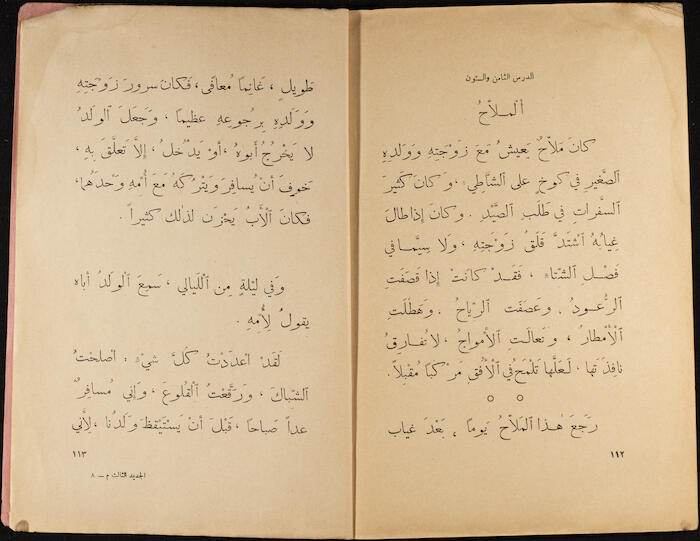 الدرس الثامن والستون
اَلْمَلاَّحُ
كانَ مَلاَّحٌ يَعيشُ مَعَ زَوْجَتِهِ وَوَلَدِهِ
الصَّغيرِ في كوخٍ على الشَّاطِيءِ ، وَكانَ كَثيرَ
السَّفَراتِ في طَلَبِ الصَّيْدِ . وَكانَ إذا طالَ
غِيابُهُ اَشْتَدَّ قَلَقُ زَوْجَتِهِ ، وَلا سِيَّما في
فَصْلِ الشِّتاءِ ، فَقَدْ كانَتْ إذا قَصَفَتِ
الرُّعودُ ، وَعَصَفَتِ الرِّياحُ ، وَهَطَلَتِ
الْأَمْطارُ ، وَتَعالَتِ الْأَمْواجُ ، لا تُفارِقُ
نافِذَتَها ، لَعَلَّها تَلْمَحُ في الْأُفُقِ مَرْكَباً مُقْبِلاً .
رَجَعَ هٰذا الْمَلاَّحُ يَوْماً ، بَعْدَ غِيابٍ
١١٢
طَويلٍ ، غانِماً مُعافًى ، فَكانَ سُرورُ زَوْجَتِهِ
وَوَلَدِهِ بِرُجوعِهِ عَظيماً ، وَجَعَلَ الْوَلَدُ
لا يَخْرُجُ أَبوهُ ، أَوْ يَدْخُلُ ، إلاَّ تَعَلَّقَ بِهِ ،
خَوْفَ أَنْ يُسافِرَ وَيَتْرُكَهُ مَعَ أُمِّهِ وَحْدَهُما ،
فَكانَ الْأَبُ يَحْزَنُ لِذٰلِكَ كَثيراً .
وَفي لَيْلَةٍ مِنَ اللَّيالي ، سَمِعَ الْوَلَدُ أَباهُ
يَقولُ لِأُمِّهِ .
لَقَدْ أَعْدَدْتُ كُلَّ شَيْءٍ : أَصْلَحْتُ
الشِّباكَ ، وَرَقَّعْتُ الْقُلوعَ ، وَإِنِّي مُسافِرٌ
غداً صَباحاً ، قَبْلَ أَنْ يَسْتَيْقِظَ وَلَدُنا ، لِأَنِّي
١١٣
الجديد الثالث م – ٨